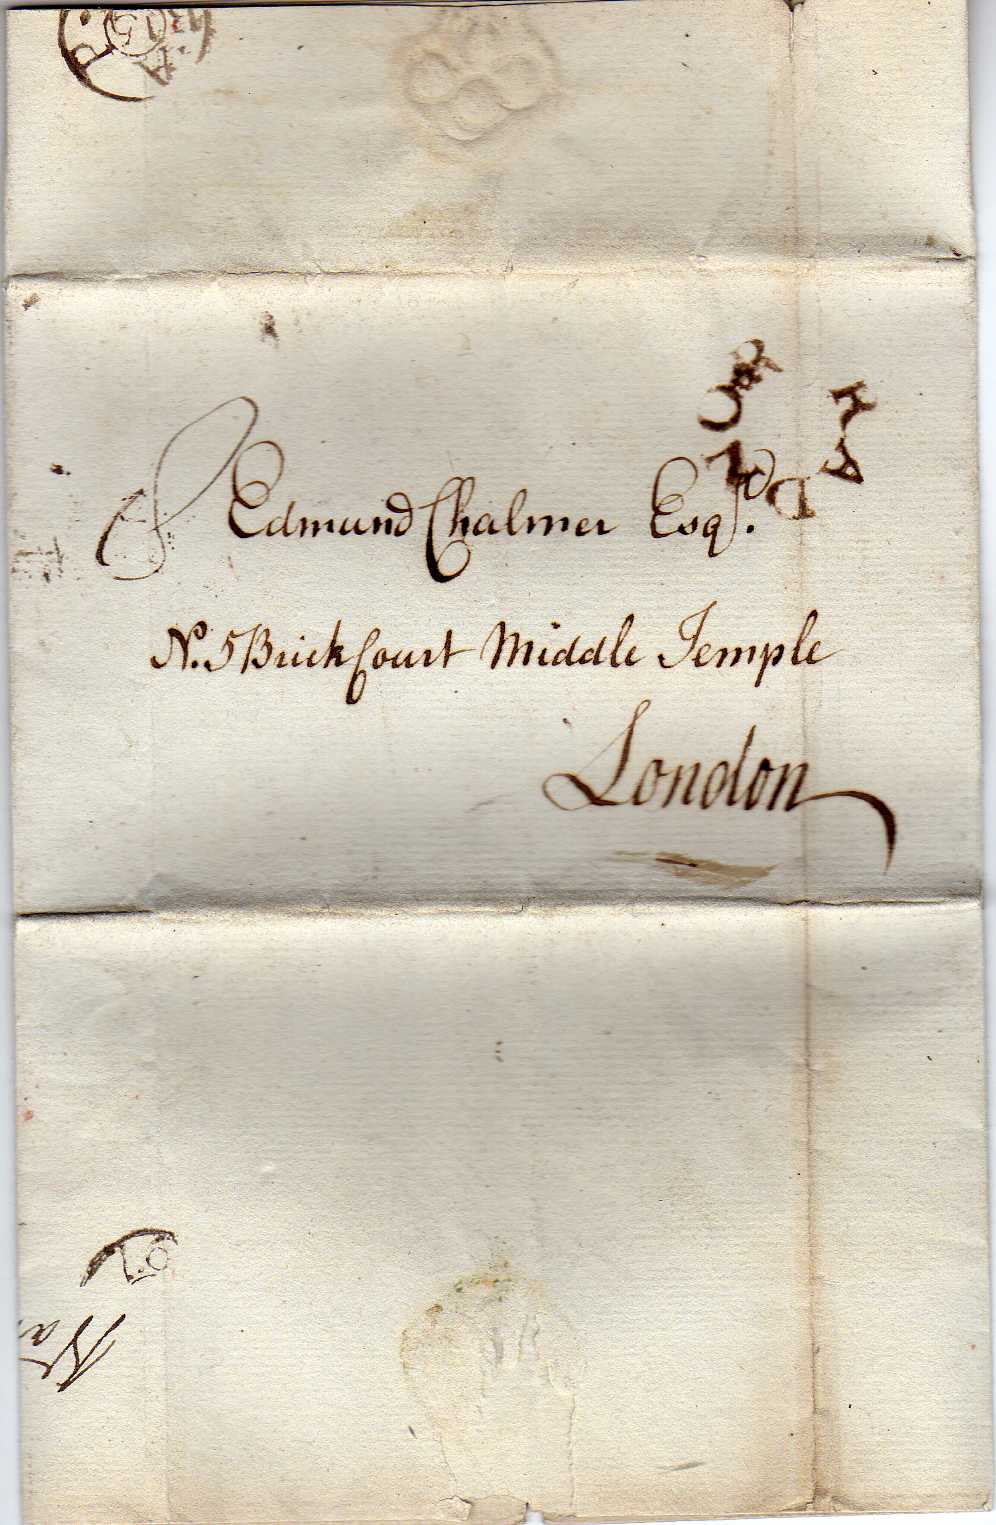 Edmund Chalmer Esqr.
No. 5 Brick Court Middle Temple
London